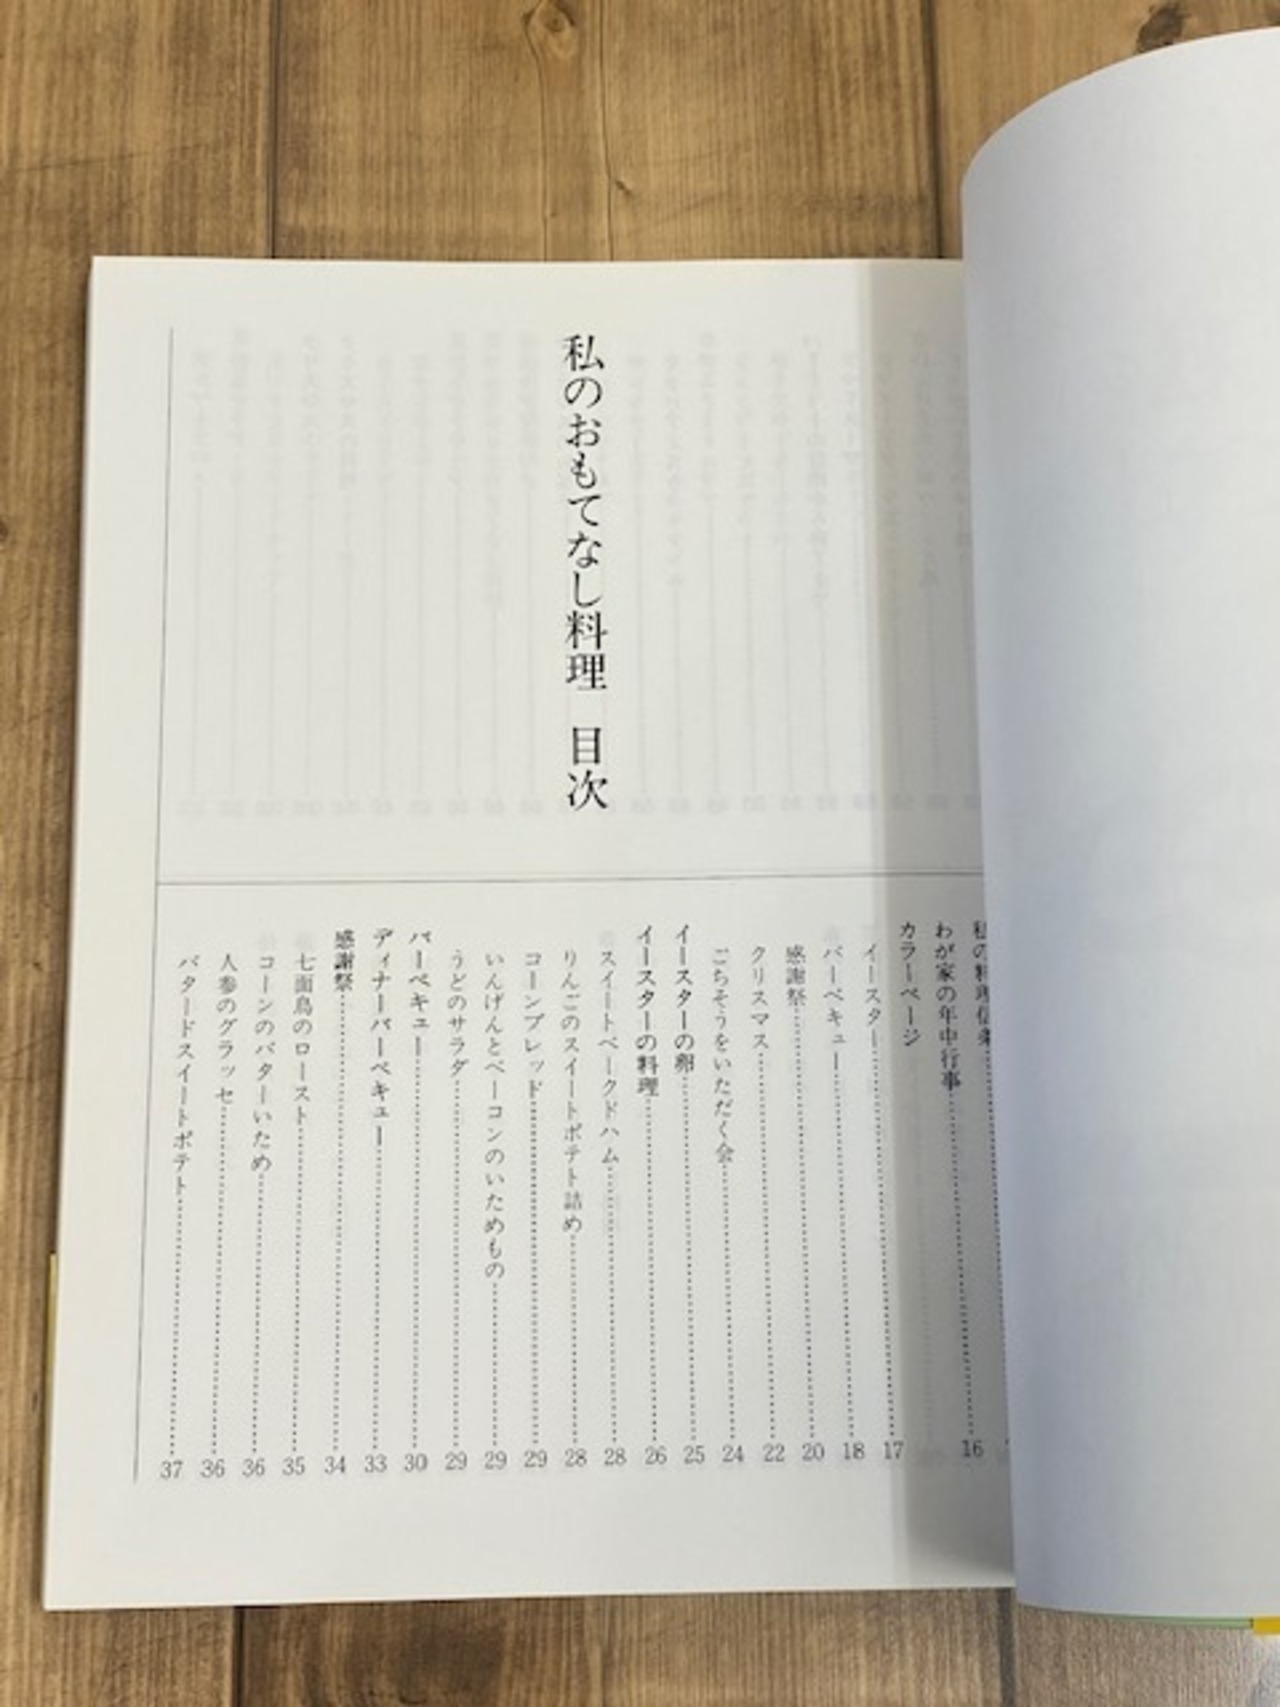 私のおもてなし料理 目次
私の料理信条
わが家の年中行事 16
カラーページ
イースター 17
バーベキュー 18
感謝祭 20
クリスマス 22
ごちそうをいただく会 24
イースターの卵 25
イースターの料理 26
スイートベークドハム 28
りんごのスイートポテト詰め 28
コーンブレッド 29
いんげんとベーコンのいためもの 29
うどのサラダ 29
バーベキュー 30
ディナーバーベキュー 33
感謝祭 34
七面鳥のロースト 35
コーンのバターいため 36
人参のグラッセ 36
バタードスイートポテト 37